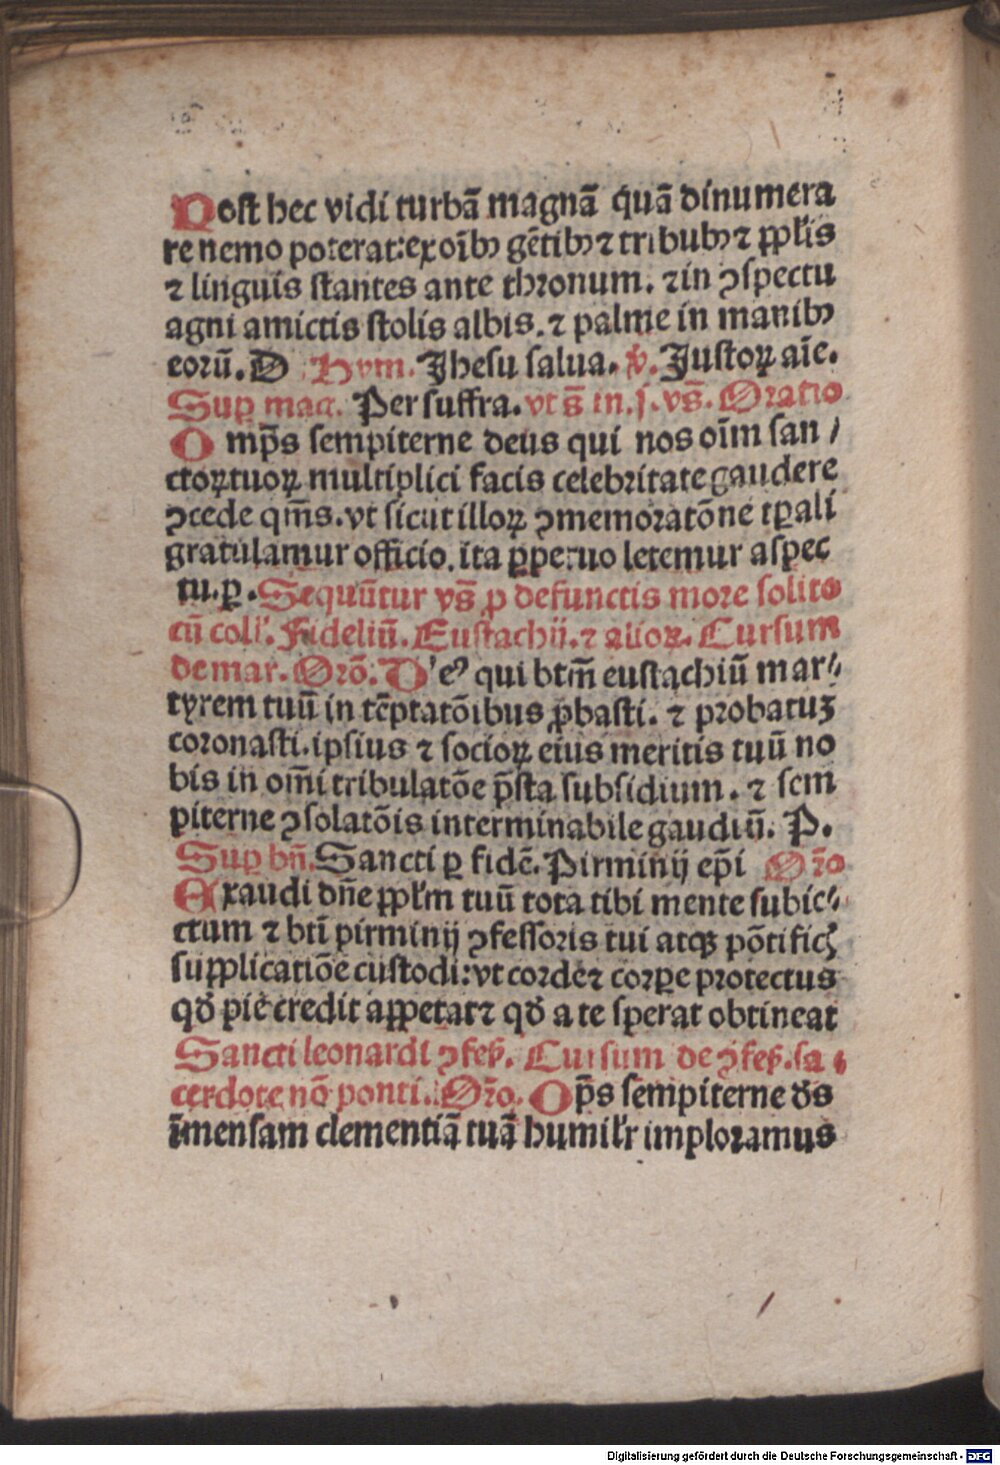 Post hec vidi turbã magnã quã dinumera
re nemo poterat: ex oĩbꝫ gẽtibꝫ ⁊ tribubꝫ ⁊ ppl̃is
⁊ linguis stantes ante thronum. ⁊ in ꝯspectu
agni amictis stolis albis. ⁊ palme in manibꝫ
eorũ. D Hym. Jhesu salua. v̓. Justoꝝ aĩe.
Suꝑ mag. Per suffra. vt s̃ in. j. vs̃. Oratio
Omp̃s sempiterne deus qui nos oĩm san /
ctoꝝ tuoꝝ multiplici facis celebritate gaudere
ꝯcede qm̃s. vt sicut illoꝝ ꝯmemoratõne tꝑali
gratulamur officio. ita ꝑpetuo letemur aspec
tu. ꝑ. Sequũtur vs̃ ꝓ defunctis more solito
cũ coll̓. Fideliũ. Eustachij. ⁊ alioꝝ. Cursum
de mar. Orõ. D'eꝰ qui btm̃ eustachiũ mar⸗
tyrem tuũ in tẽptatõibus ꝓbasti. ⁊ probatuꝫ
coronasti. ipsius ⁊ socioꝝ eius meritis tuũ no
bis in om̃i tribulatõe p̃sta subsidium. ⁊ sem
piterne ꝯsolatõis interminabile gaudiũ. P.
Suꝑ bñ. Sancti ꝑ fidẽ. Pirminij ep̃i Orõ
Exaudi dñe ppl̃m tuũ tota tibi mente subie⸗
ctum ⁊ btĩ pirminij ꝯfessoris tui atqꝫ põtificꝭ
supplicatiõe custodi: vt corde ⁊ corꝑe protectus
qd̓ pie credit appetat ⁊ qd̓ a te sperat obtineat
Sancti leonardi ꝯfes̓. Cursum de ꝯfes̓. sa⸗
cerdote nõ ponti. Orõ. Op̃s sempiterne ds̓
ĩmensam clementiã tuã humil̓r imploramus
Digitalisierung gefördert durch die Deutsche Forschungsgemeinschaft - DFG